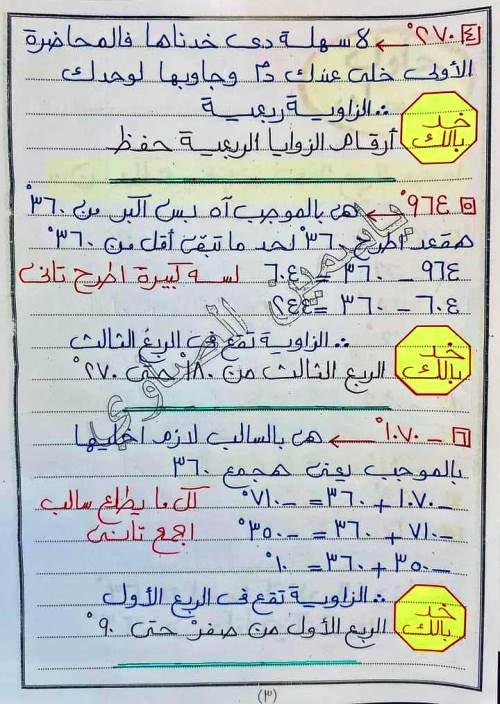 ٤ ٢٧٠° ← لا سهلة دى خدناها فالمحاضرة
الأولى خلى عندك دم وجاوبها لوحدك
∴ الزاوية ربعية
خد بالك
أرقام الزوايا الربعية حفظ
٥ ٩٦٤° ← هى بالموجب آه بس أكبر من ٣٦٠°
هقعد اطرح ٣٦٠° لحد ما تبقى أقل من ٣٦٠°
٩٦٤ - ٣٦٠ = ٦٠٤ لسه كبيرة اطرح تانى
٦٠٤ - ٣٦٠ = ٢٤٤
∴ الزاوية تقع فى الربع الثالث
خد بالك
الربع الثالث من ١٨٠° حتى ٢٧٠°
٦ -١٠٧٠° ← هى بالسالب لازم اخليها
بالموجب يعنى هجمع ٣٦٠
-١٠٧٠ + ٣٦٠ = -٧١٠° كل ما يطلع سالب
-٧١٠ + ٣٦٠ = -٣٥٠° اجمع تانى
-٣٥٠ + ٣٦٠ = ١٠°
∴ الزاوية تقع فى الربع الأول
خد بالك
الربع الأول من صفر° حتى ٩٠°
(٣)